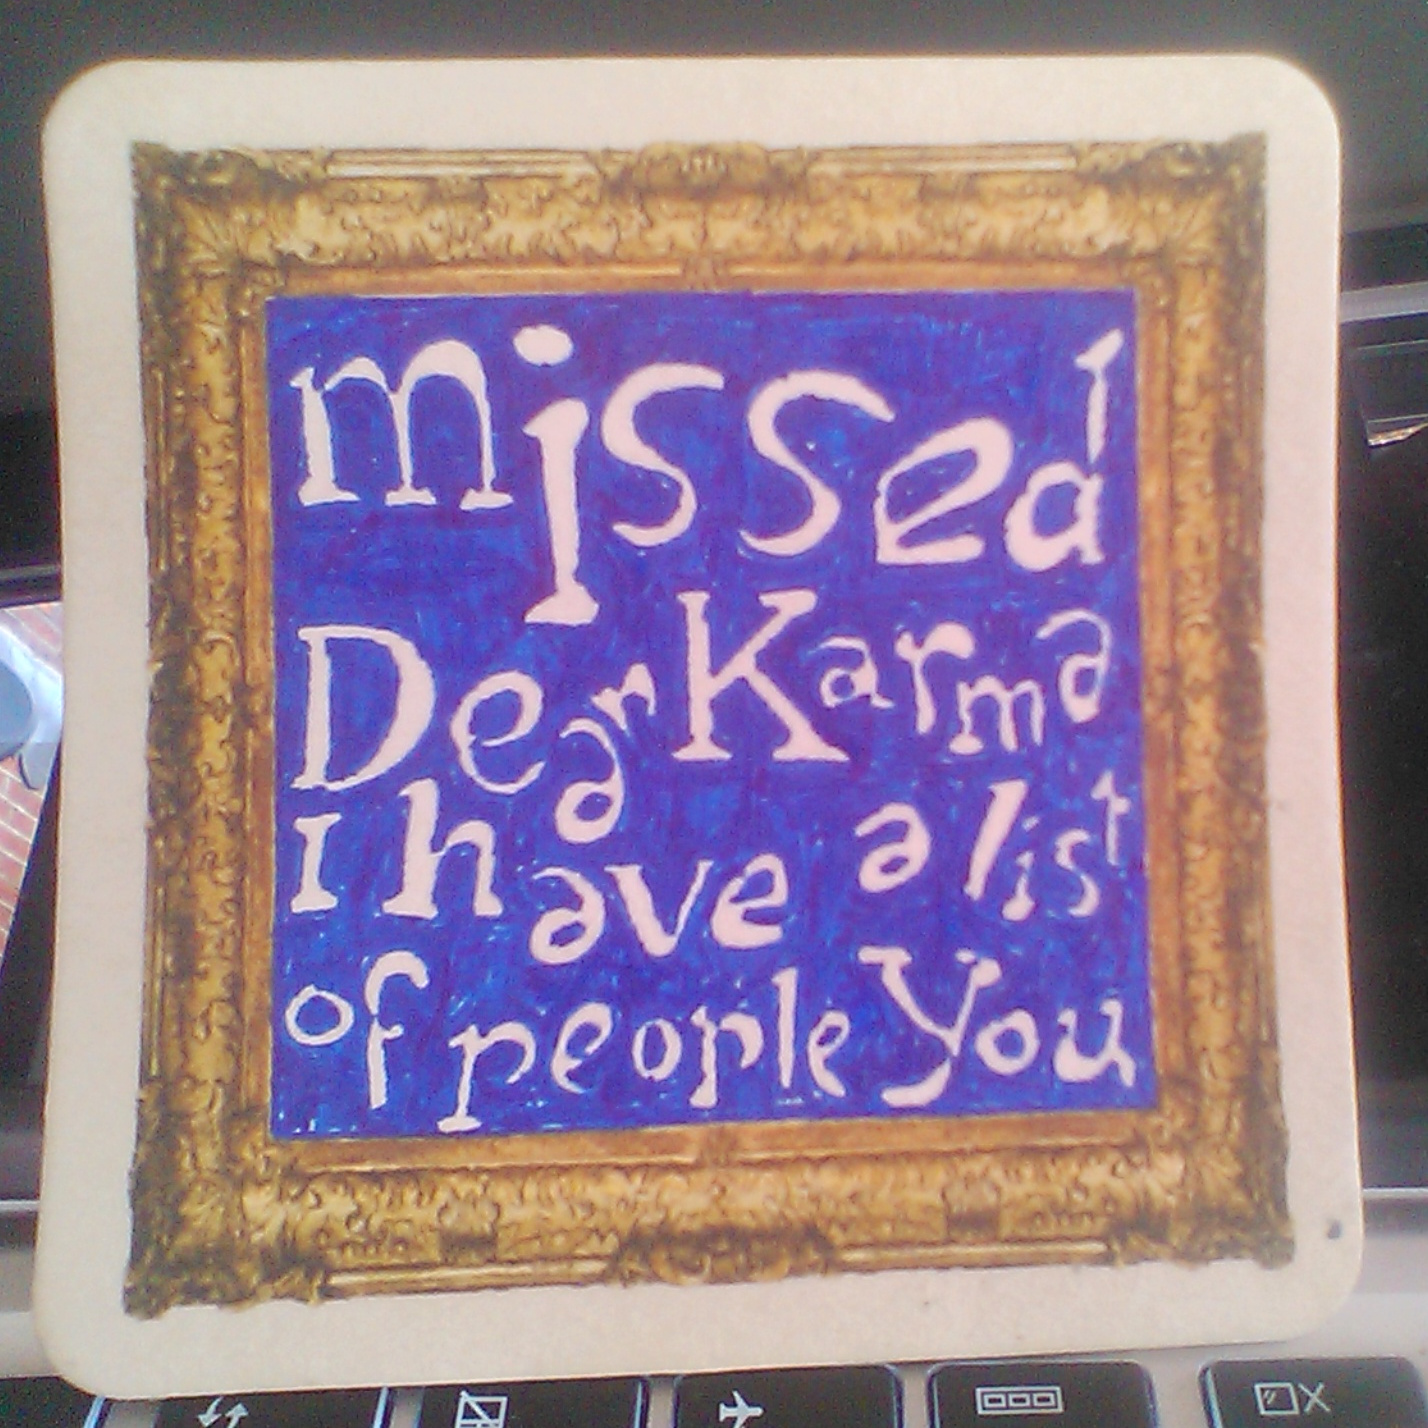 missed
Dear Karma
I have a list
of people You